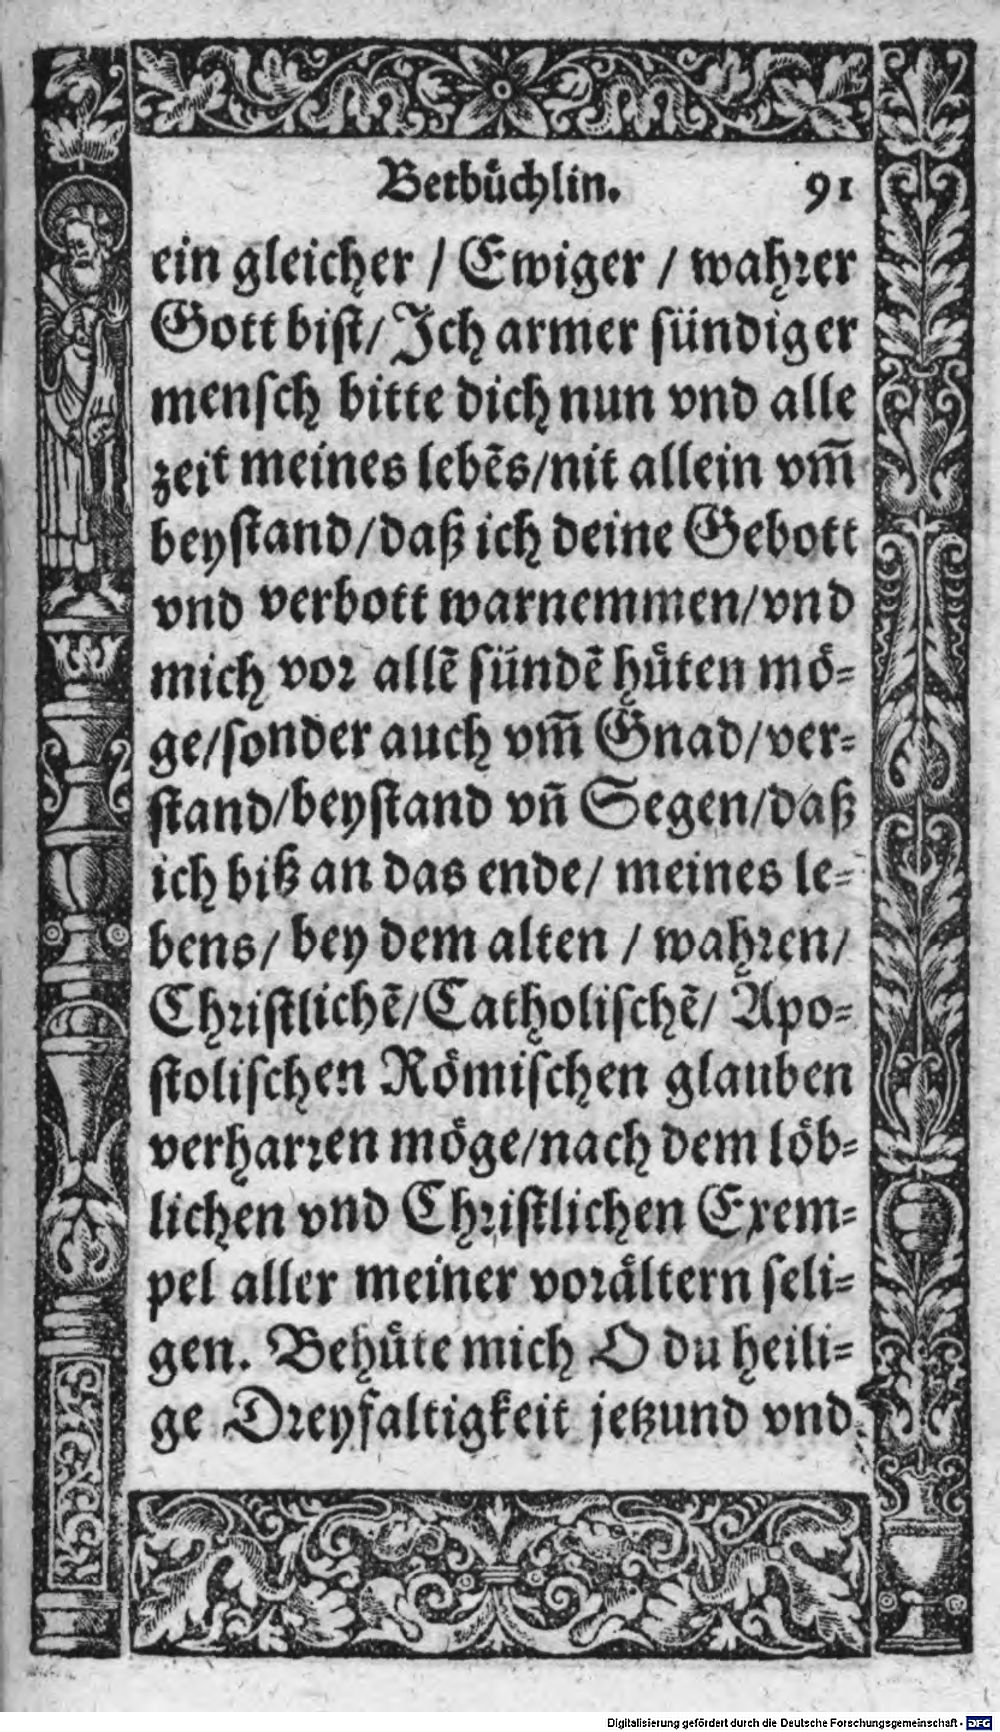 Betbuͤchlin. 91
ein gleicher / Ewiger / wahrer
Gott bist / Ich armer sündiger
mensch bitte dich nun vnd alle
zeit meines lebẽs / nit allein vm̃
beystand / daß ich deine Gebott
vnd verbott warnemmen / vnd
mich vor allẽ sündẽ huͤten moͤ-
ge / sonder auch vm̃ Gnad / ver-
stand / beystand vñ Segen / daß
ich biß an das ende / meines le-
bens / bey dem alten / wahren /
Christlichẽ / Catholischẽ / Apo-
stolischen Roͤmischen glauben
verharren moͤge / nach dem loͤb-
lichen vnd Christlichen Exem-
pel aller meiner voraͤltern seli-
gen. Behuͤte mich O du heili-
ge Dreyfaltigkeit jetzund vnd
Digitalisierung gefördert durch die Deutsche Forschungsgemeinschaft - DFG